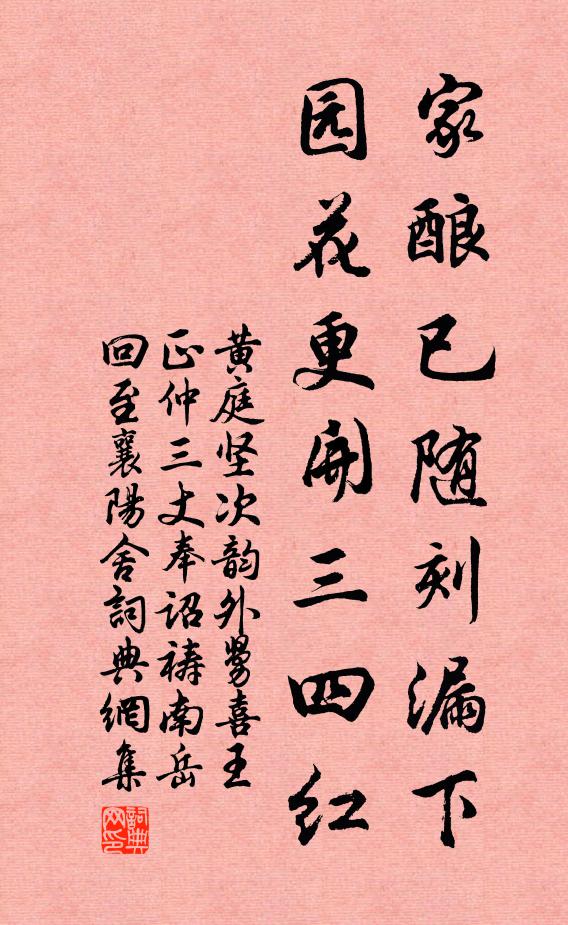 家酿已随刻漏下
园花更开三四红
黄庭坚次韵外舅喜王
正仲三丈奉诏祷南岳
回至襄陽舍詞典網集
詞典网印